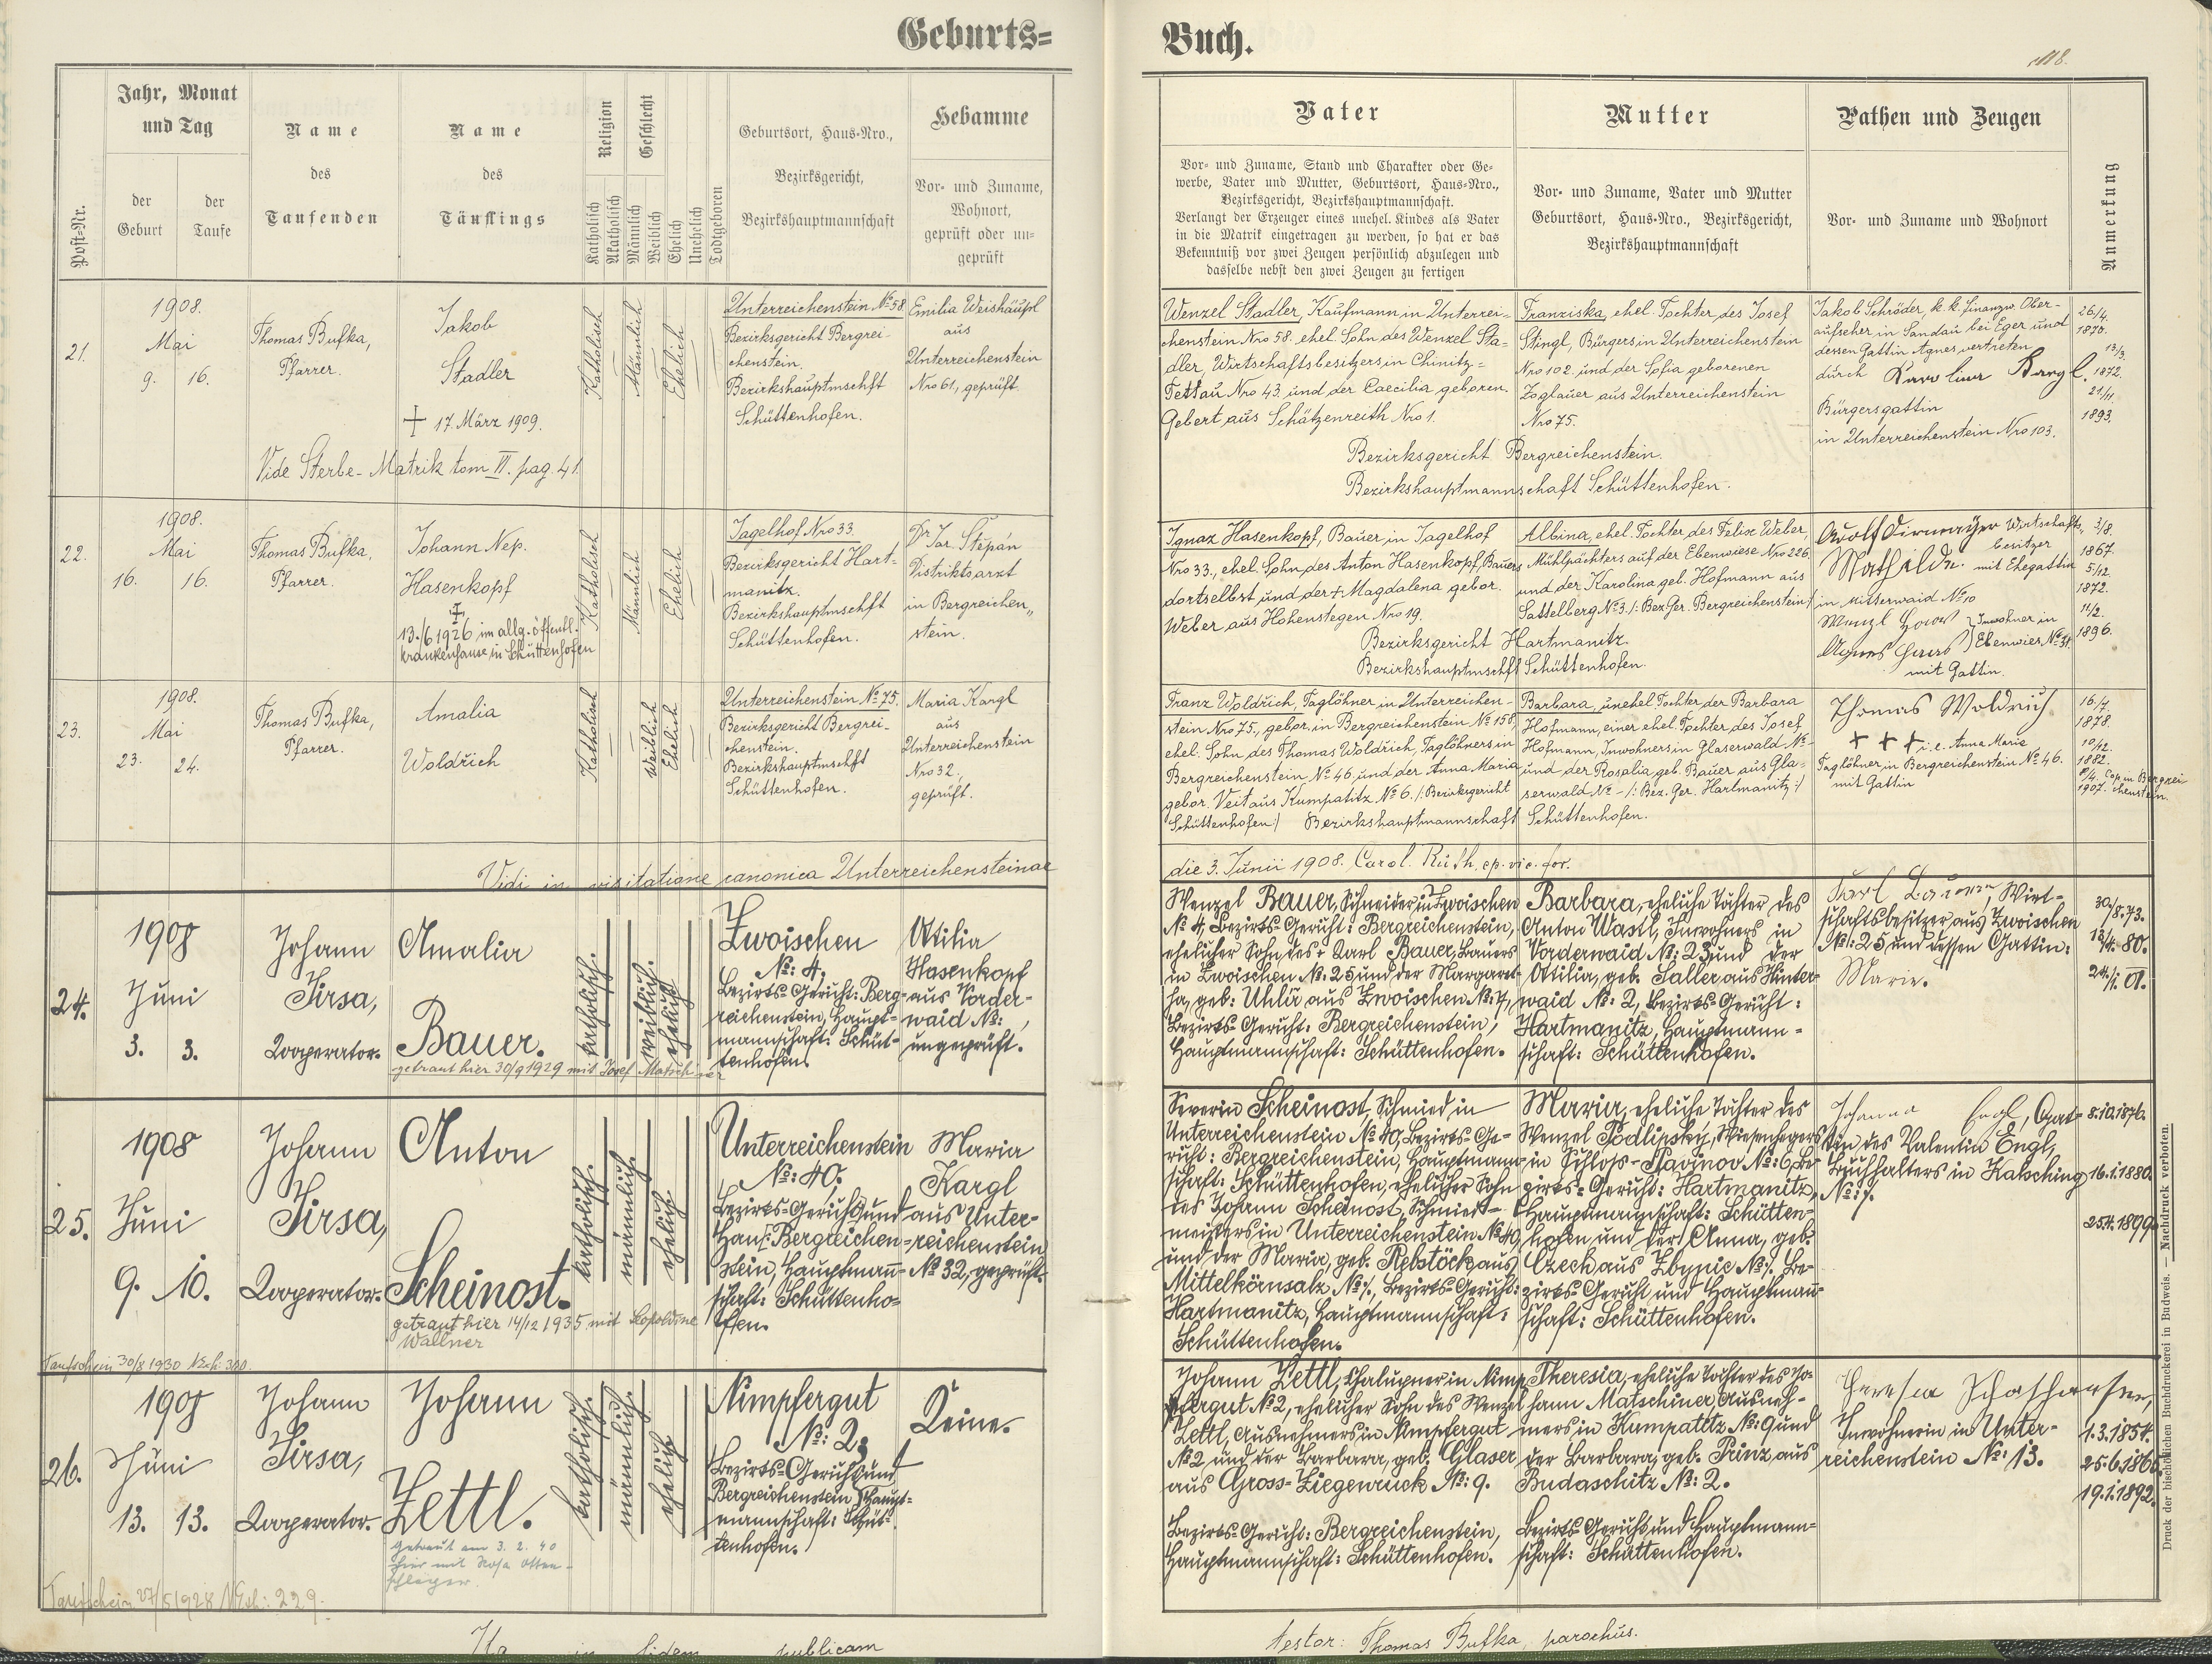 Geburts=
Buch.
118.
Post-Nr.
Jahr, Monat
und Tag
der
Geburt
der
Taufe
Name
des
Taufenden
Name
des
Täuflings
Religion
Katholisch
Akatholisch
Geschlecht
Männlich
Weiblich
Ehelich
Unehelich
Todtgeboren
Geburtsort, Haus-Nro.,
Bezirksgericht,
Bezirkshauptmannschaft
Hebamme
Vor- und Zuname,
Wohnort,
geprüft oder un-
geprüft
Vater
Vor- und Zuname, Stand und Charakter oder Ge-
werbe, Vater und Mutter, Geburtsort, Haus-Nro.,
Bezirksgericht, Bezirkshauptmannschaft.
Verlangt der Erzeuger eines unehel. Kindes als Vater
in die Matrik eingetragen zu werden, so hat er das
Bekenntniß vor zwei Zeugen persönlich abzulegen und
dasselbe nebst den zwei Zeugen zu fertigen
Mutter
Vor- und Zuname, Vater und Mutter
Geburtsort, Haus-Nro., Bezirksgericht,
Bezirkshauptmannschaft
Pathen und Zeugen
Vor- und Zuname und Wohnort
Anmerkung
21.
1908.
Mai
9. 16.
Thomas Bufka,
Pfarrer.
Jakob
Stadler
+ 17. März 1909.
Vide Sterbe-Matrik tom II. pag. 41.
Katholisch
Männlich
Ehelich
Unterreichenstein No 58
Bezirksgericht Bergrei-
chenstein.
Bezirkshauptmschft
Schüttenhofen.
Emilia Weishäupl
aus
Unterreichenstein
Nro 61, geprüft.
Wenzel Stadler, Kaufmann in Unterrei-
chenstein Nro 58. ehel. Sohn des Wenzel Sta-
dler, Wirtschaftsbesitzers in Chinitz-
Tettau Nro 43. und der Caecilia geboren.
Gebert aus Schätzenreith Nro 1.
Franziska, ehel. Tochter des Josef
Stingl, Bürgers in Unterreichenstein
Nro 102. und der Sofia geborenen
Zoglauer aus Unterreichenstein
Nro 75.
Bezirksgericht Bergreichenstein.
Bezirkshauptmannschaft Schüttenhofen.
Jakob Schröder, k. k. Finanzw. Ober-
aufseher in Sandau bei Eger und
dessen Gattin Agnes, vertreten
durch Karolina Kargl.
Bürgersgattin
in Unterreichenstein Nro 103.
26/4.
1870.
13/3.
1872.
21/11.
1893.
22.
1908.
Mai
16. 16.
Thomas Bufka,
Pfarrer.
Johann Nep.
Hasenkopf
+
13./6 1926 im allg. öffentl.
Krankenhause in Schüttenhofen
Katholisch
Männlich
Ehelich
Jagelhof Nro 33.
Bezirksgericht Hart-
manitz.
Bezirkshauptmschft
Schüttenhofen.
Dr Jar. Štěpán
Distriktsarzt
in Bergreichen„
stein.
Ignaz Hasenkopf, Bauer in Jagelhof
Nro 33., ehel. Sohn des Anton Hasenkopf, Bauers
dortselbst, und der + Magdalena gebor.
Weber aus Hohenstegen Nro 19.
Albina, ehel. Tochter des Felix Weber,
Mühlpächters auf der Ebenwiese Nro 226.
und der Karolina geb. Hofmann aus
Sattelberg No 3. /: Bez. Ger. Bergreichenstein :/
Bezirksgericht Hartmanitz.
Bezirkshauptmschft Schüttenhofen.
Wirtschafts„
besitzer
Mathilde. mit Ehegattin
in Mitterwaid No 10
Inwohner in
mit Gattin.
3/8.
1867.
5./12.
1872.
11/2.
1896.
23.
1908.
Mai
23. 24.
Thomas Bufka,
Pfarrer.
Amalia
Woldřich
Katholisch
Weiblich
Ehelich
Unterreichenstein No 75.
Bezirksgericht Bergrei-
chenstein.
Bezirkshauptmschft
Schüttenhofen.
Maria Kargl
aus
Unterreichenstein
Nro 32,
geprüft.
Franz Woldřich, Taglöhner in Unterreichen-
stein Nro 75., gebor. in Bergreichenstein No 158,
ehel. Sohn des Thomas Woldřich, Taglöhners in
Bergreichenstein No 46. und der Anna Maria
gebor. Veit aus Kumpatitz No 6. /: Bezirksgericht
Schüttenhofen :/ Bezirkshauptmannschaft Schüttenhofen.
Barbara, unehel. Tochter der Barbara
Hofmann, einer ehel. Tochter des Josef
Hofmann, Inwohners in Glaserwald No -
und der Rosalia, geb. Bauer aus Gla-
serwald No - /: Bez. Ger. Hartmanitz :/
Thomas Woldrich.
+ + + i. e. Anna Marie
Taglöhner, in Bergreichenstein No 46.
mit Gattin
16./7.
1878.
10/12.
1882.
8/4. Cop. in Bergrei
1907. chenstein.
Vidi in visitatione canonica Unterreichensteinae
die 3. Junii 1908. Carol. Růth, ep. vic. for.
24.
1908
Juni
3. 3.
Johann
Jirsa,
Kooperator.
Amalia
Bauer.
getraut hier 30/9 1929 mit Josef Matschiner
katholisch.
weiblich.
ehelich
Zwoischen
No: 4.
Bezirks-Gericht: Berg-
reichenstein, Haupt-
mannschaft: Schüt-
tenhofen.
Ottilia
Hasenkopf
aus Vorder-
waid No: ,
ungeprüft.
Wenzel Bauer, Schneider in Zwoischen
No 4, Bezirks-Gericht: Bergreichenstein,
ehelicher Sohn des + Karl Bauer, Bauers
in Zwoischen No: 25 und der Margare-
tha, geb: Uhlíř aus Zwoischen No: 7,
Bezirks-Gericht: Bergreichenstein,
Hauptmannschaft: Schüttenhofen.
Barbara, eheliche Tochter des
Anton Wastl, Inwohners in
Vorderwaid No: 23 und der
Ottilia, geb. Saller aus Hinter-
waid No: 2, Bezirks-Gericht:
Hartmanitz, Hauptmann-
schaft: Schüttenhofen.
Karl Bauer, Wirt-
schaftsbesitzer aus Zwoischen
No: 25 und dessen Gattin:
Marie.
30/8. 73.
13/4. 80.
24./1. 01.
25.
1908
Juni
9. 10.
Johann
Jirsa,
Kooperator.
Anton
Scheinost.
getraut hier 14/12 1935 mit Leopoldine
Wallner
Taufschein 30/8 1930 NExh: 360.
katholisch.
männlich.
ehelich
Unterreichenstein
No: 40.
Bezirks-Gericht und
Bergreichen-
stein, Hauptman̄-
schaft: Schüttenho-
fen.
Maria
Kargl
aus Unter-
reichenstein
No 32, geprüft.
Severin Scheinost, Schmied in
Unterreichenstein No 40, Bezirks-Ge-
richt: Bergreichenstein, Hauptmann-
schaft: Schüttenhofen, ehelicher Sohn
des Johann Scheinost, Schmied-
meisters in Unterreichenstein No 40,
und der Maria, geb. Rebstöck aus
Mittelkörnsalz No: /., Bezirks-Gericht:
Hartmanitz, Hauptmannschaft:
Schüttenhofen.
Maria, eheliche Tochter des
Wenzel Podlipský, Wiesenhegers
in Schloss-Navinov No: 6, Be-
zirks-Gericht: Hartmanitz,
Hauptmannschaft: Schütten-
hofen und der Anna, geb.
Czech aus Zbynic No: /. Be-
zirks-Gericht und Hauptman̄-
schaft: Schüttenhofen.
Johanna Engl, Gat-
tin des Valentin Engl,
Buchhalters in Katsching
No: 7.
8.10.1876.
16.1.1880.
25.4.1899.
26.
1908
Juni
13. 13.
Johann
Jirsa,
Kooperator.
Johann
Zettl.
Getraut am 3. 2. 40
hier mit Rosa Otten-
schläger.
Taufschein 27/5 1928 NExh: 229.
katholisch.
männlich.
ehelich
Nimpfergut
No: 2,
Bezirks-Gericht und
Bergreichenstein, Haupt-
mannschaft: Schüt-
tenhofen.
Keine.
Johann Zettl, Chalupner in Nimp-
fergut No 2, ehelicher Sohn des Wenzel
Zettl, Ausnehmers in Nimpfergut
No 2 und der Barbara, geb. Glaser
aus Gross-Ziegenruck No: 9.
Bezirks-Gericht: Bergreichenstein,
Hauptmannschaft: Schüttenhofen.
Theresia, eheliche Tochter des Jo-
hann Matschiner, Ausneh-
mers in Kumpatitz No: 9 und
der Barbara, geb. Prinz aus
Budaschitz No: 2.
Bezirks-Gericht und Hauptmann-
schaft: Schüttenhofen.
Inwohnerin in Unter-
reichenstein No: 13.
1.3.1854.
25.6.1866.
19.1.1892.
Ita in fidem publicam
testor: Thomas Bufka, parochus.
Druck der bischöflichen Buchdruckerei in Budweis. — Nachdruck verboten.